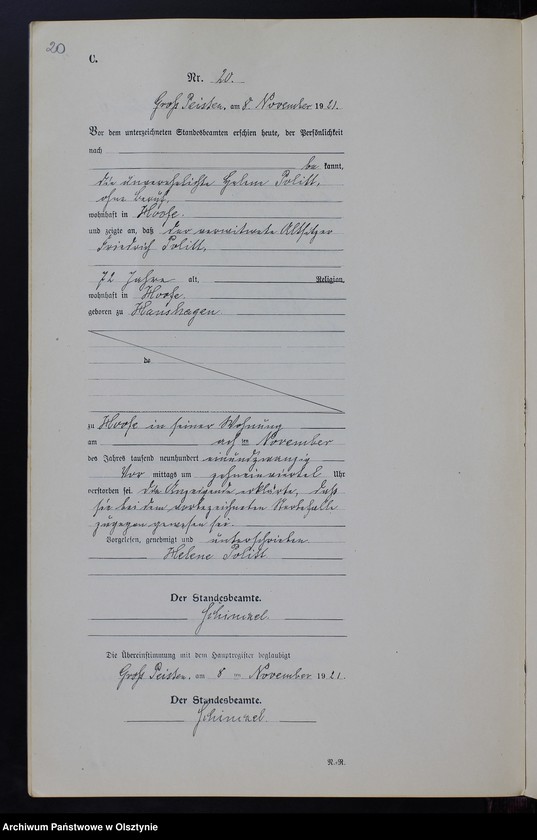 20
C.
Nr. 20.
Groß Peisten, am 8. November 1921.
Vor dem unterzeichneten Standesbeamten erschien heute, der Persönlichkeit
nach
be kannt,
die unverehelichte Helene Politt,
ohne Beruf,
wohnhaft in Hoofe,
und zeigte an, daß der verwitwete Altsitzer
Friedrich Politt,
72 Jahre alt, Religion,
wohnhaft in Hoofe,
geboren zu Hanshagen
de
zu Hoofe in seiner Wohnung
am acht ten November
des Jahres tausend neunhundert einundzwanzig
Vor mittags um zehneinviertel Uhr
verstorben sei. Die Anzeigende erklärte, daß
sie bei dem vorbezeichneten Sterbefalle
zugegen gewesen sei.
Vorgelesen, genehmigt und unterschrieben
Helene Politt
Der Standesbeamte.
Schinzel
Die Übereinstimmung mit dem Hauptregister beglaubigt
Groß Peisten, am 8 ten November 1921.
Der Standesbeamte.
Schinzel
R./R.
Archiwum Państwowe w Olsztynie